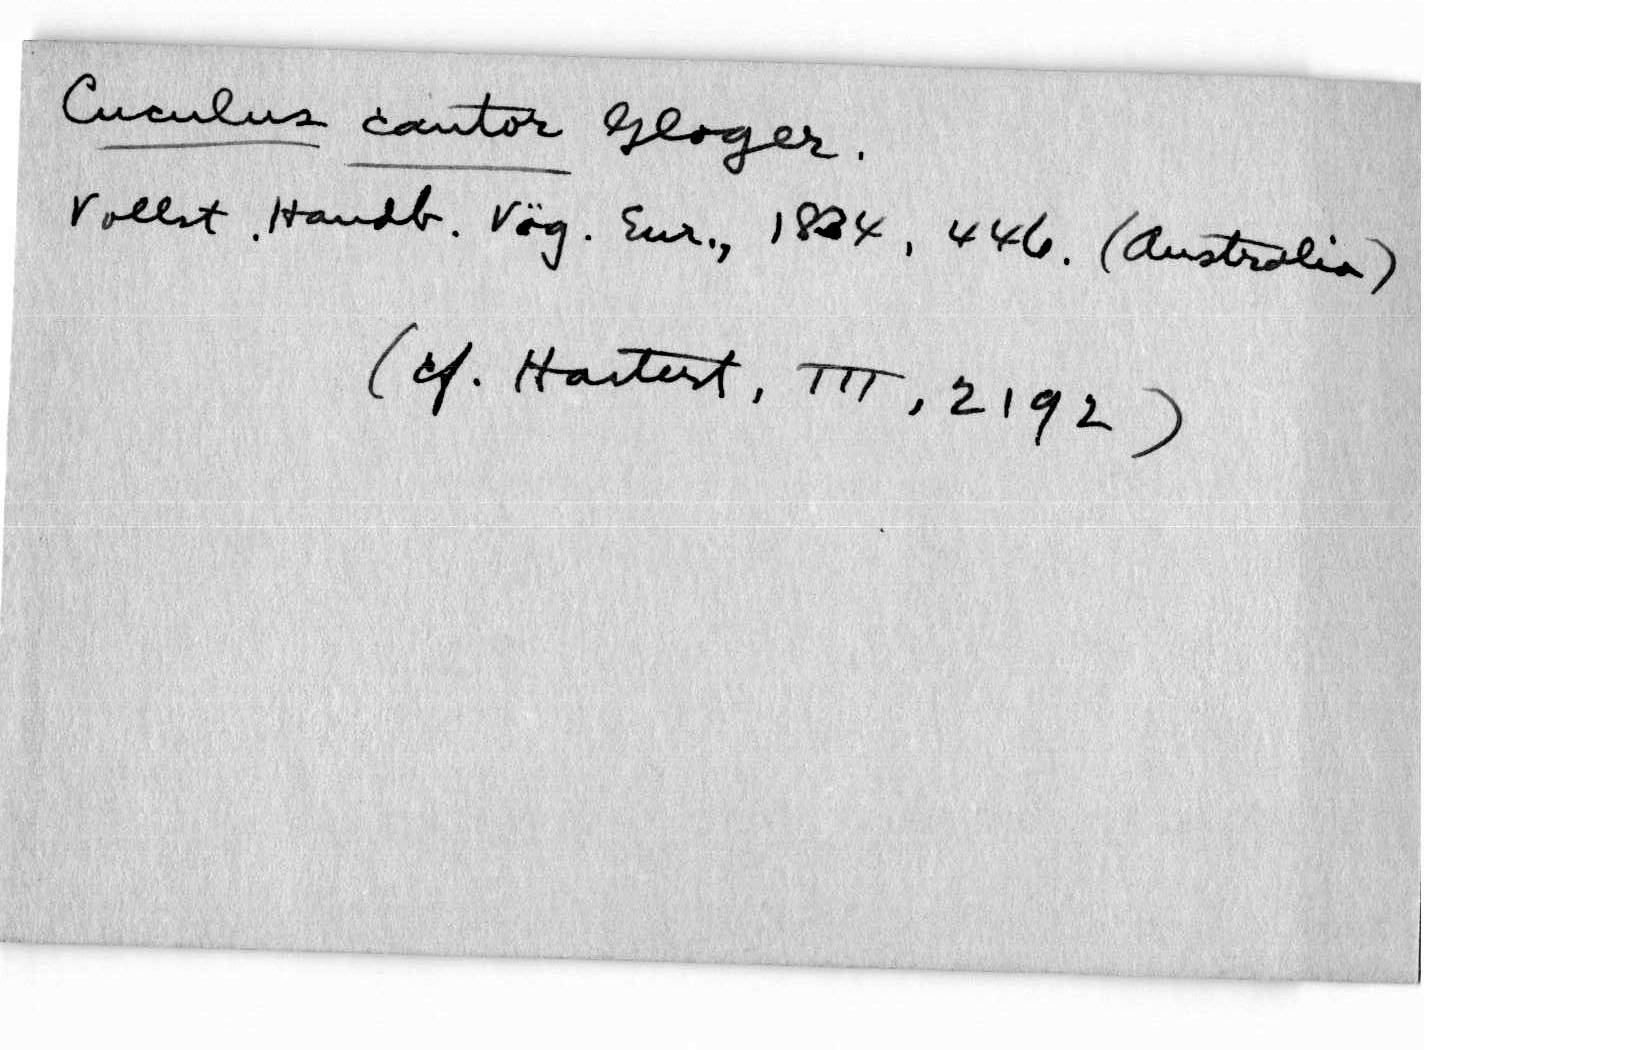 Cuculus cantor Gloger.
Vollst. Handb. Vög. Eur., 1834, 446. (Australia)
(cf. Hartert, III, 2192)